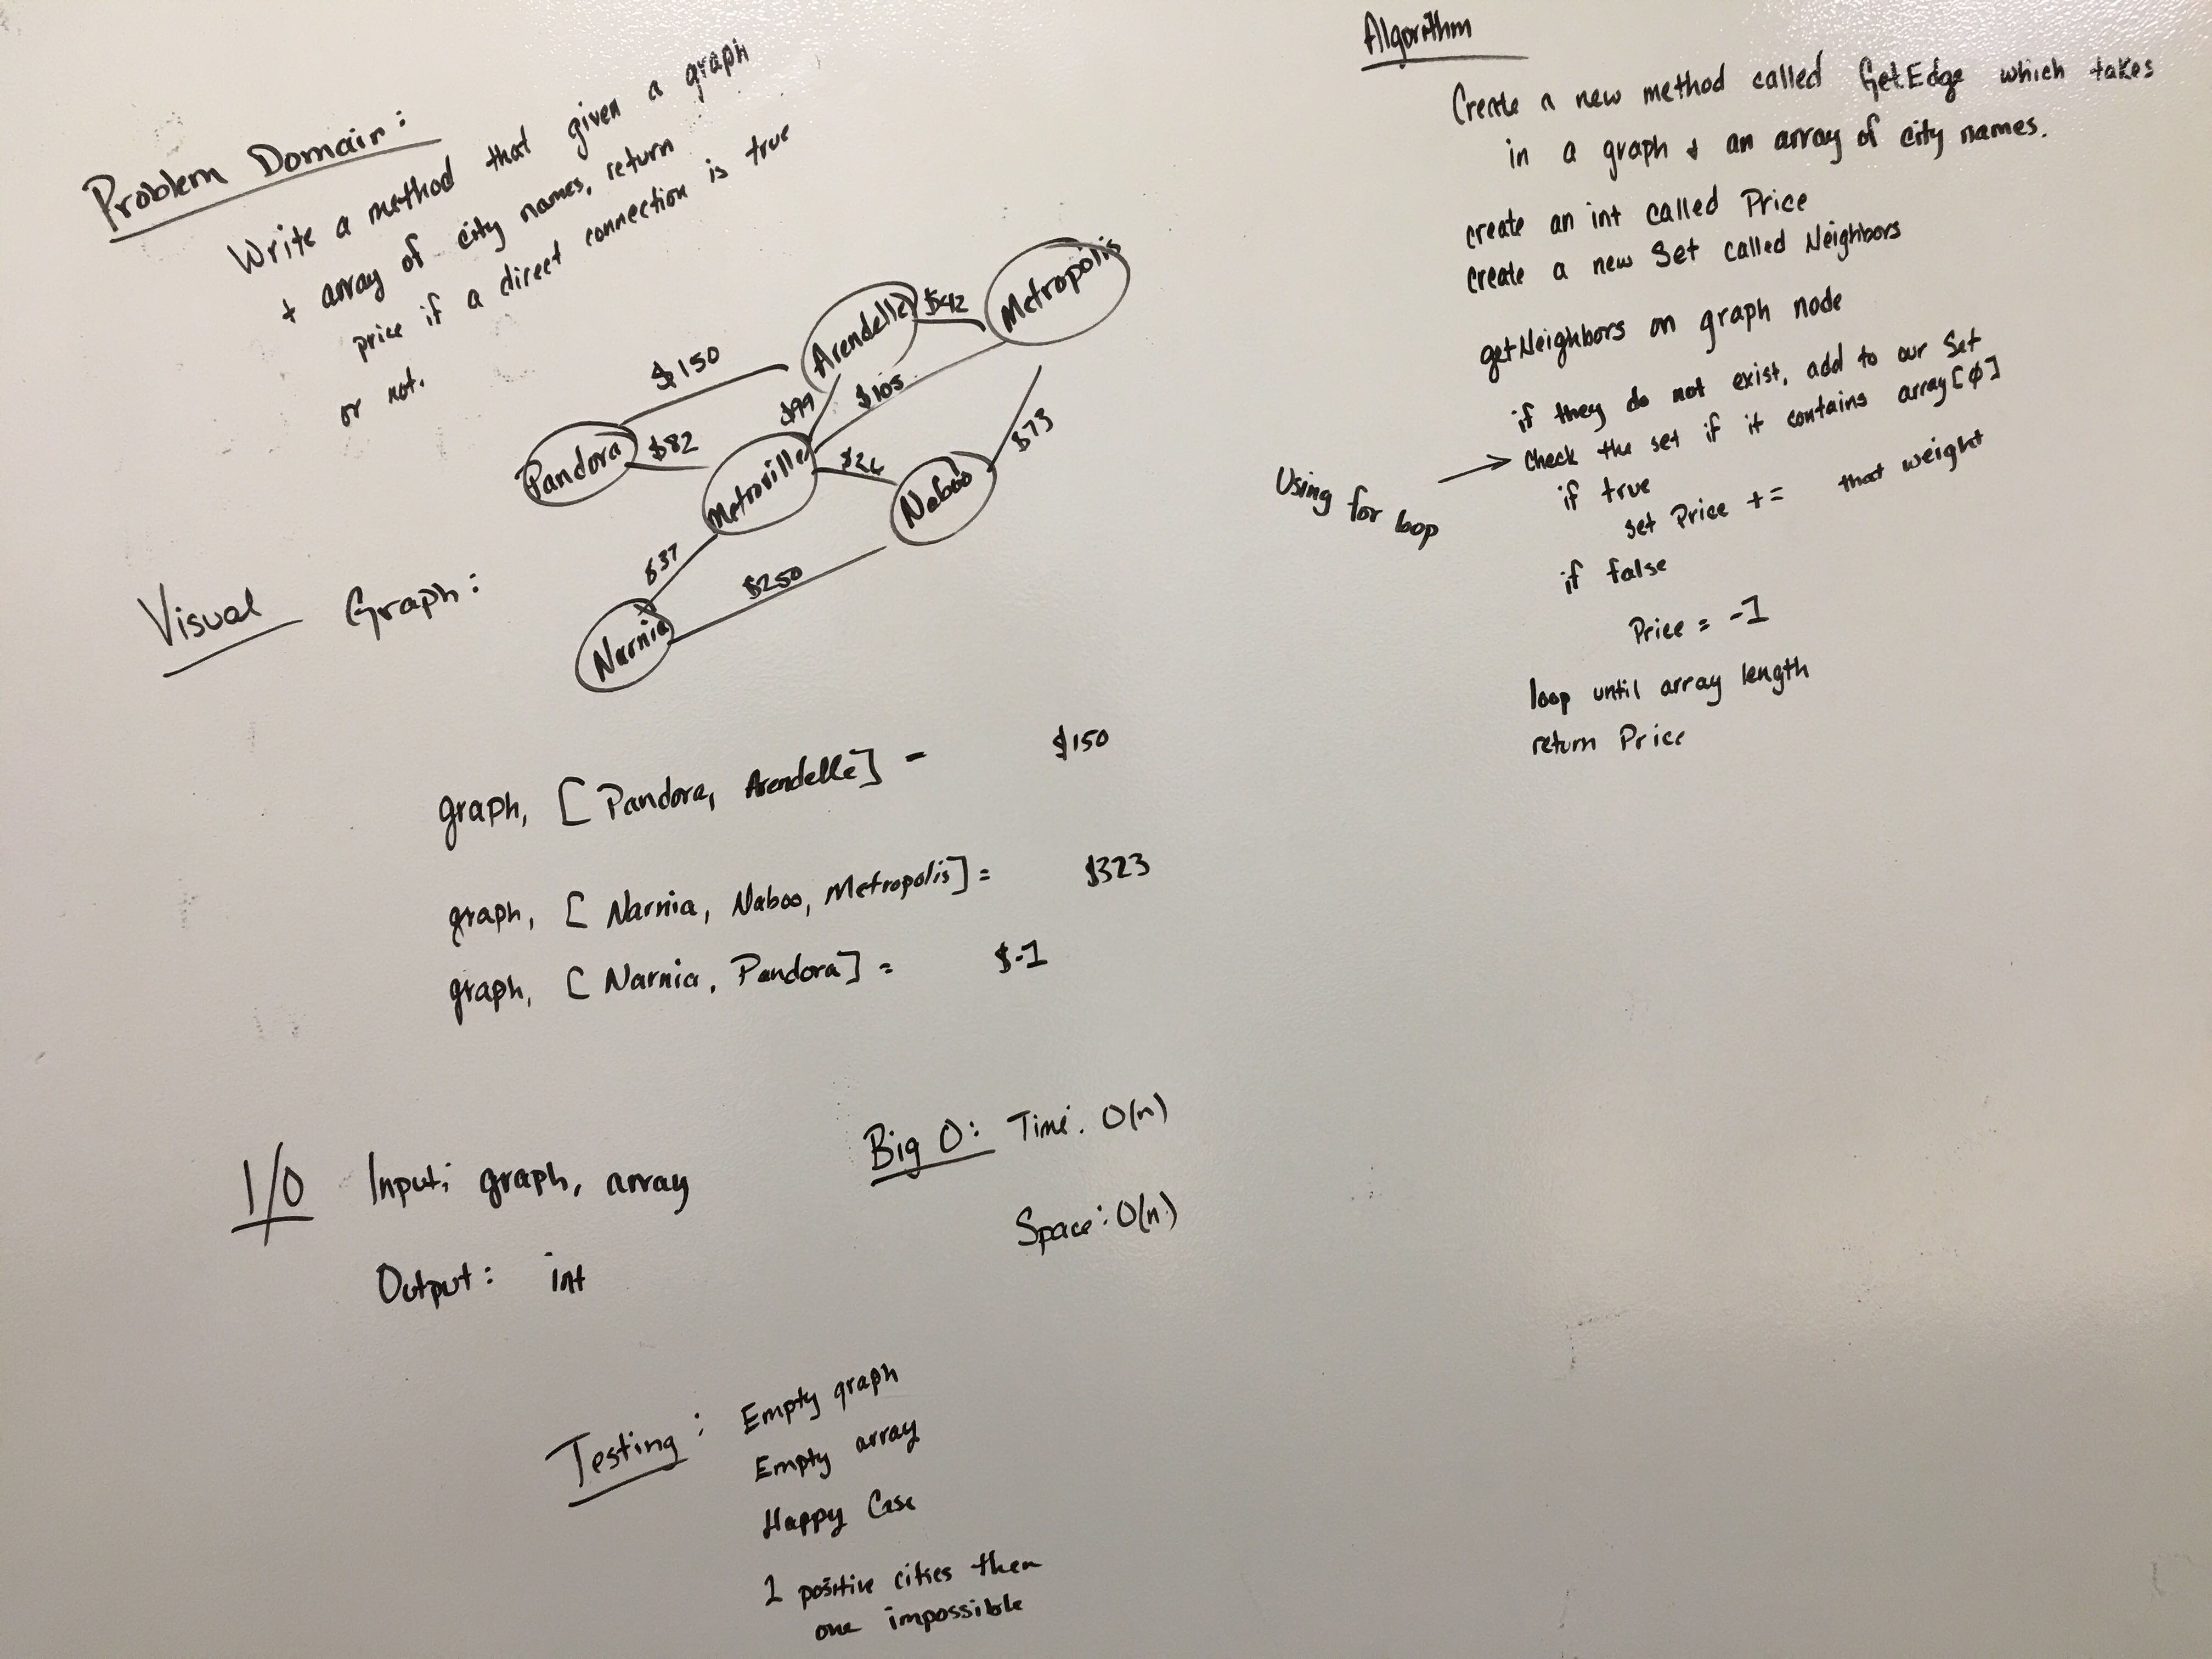 Problem Domain:
Write a method that given a graph
+ array of city names, return
price if a direct connection is true
or not.
Visual Graph:
Pandora
Arendelle
Metropolis
Metroville
Naboo
Narnia
$150
$82
$99
$42
$105
$26
$73
$37
$250
graph, [Pandora, Arendelle] = $150
graph, [Narnia, Naboo, Metropolis] = $323
graph, [Narnia, Pandora] = $-1
I/O Input: graph, array
Output: int
Big O: Time: O(n)
Space: O(n)
Testing: Empty graph
Empty array
Happy Case
positive cities then
one impossible
Algorithm
Create a new method called GetEdge which takes
in a graph & an array of city names.
create an int called Price
create a new Set called Neighbors
getNeighbors on graph node
if they do not exist, add to our Set
Using for loop → Check the set if it contains array[0]
if true
set Price += that weight
if false
Price = -1
loop until array length
return Price